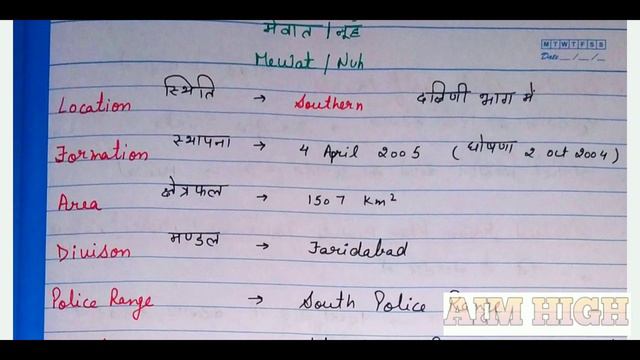 मेवात / नूँह
Mewat / Nuh
M T W T F S S
Date __/__/__
Location स्थिति → Southern दक्षिणी भाग में
Formation स्थापना → 4 April 2005 ( घोषणा 2 Oct 2004 )
Area क्षेत्रफल → 1507 Km²
Divison मण्डल → Faridabad
Police Range → South Police Range
AIM HIGH